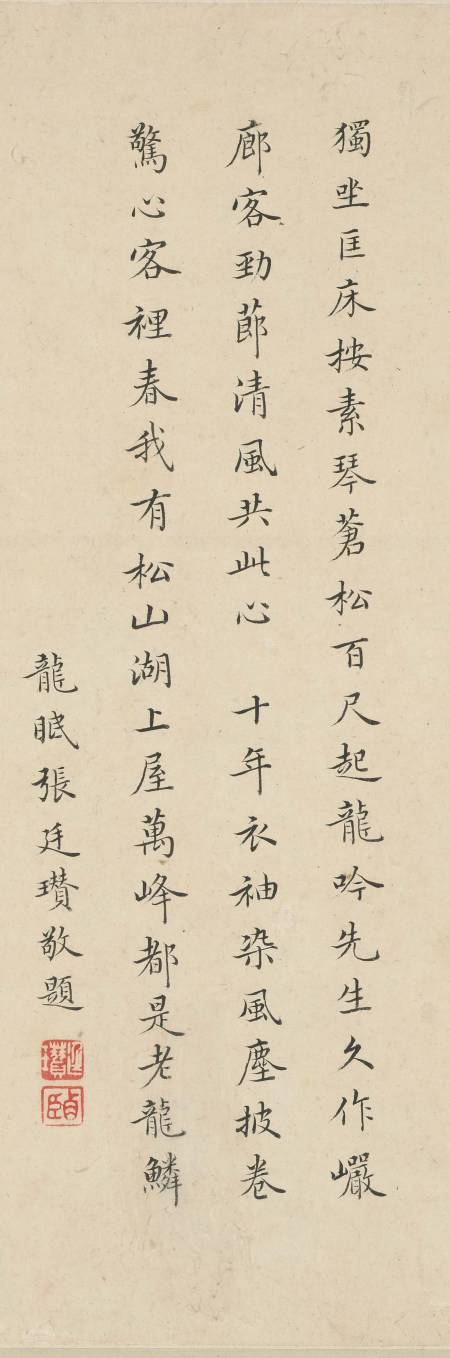 獨坐匡床按素琴蒼松百尺起龍吟先生久作巖
廊客勁莭清風共此心　十年衣袖染風塵披卷
驚心客裡春我有松山湖上屋萬峰都是老龍鱗
龍眠張廷瓚敬題
廷瓚